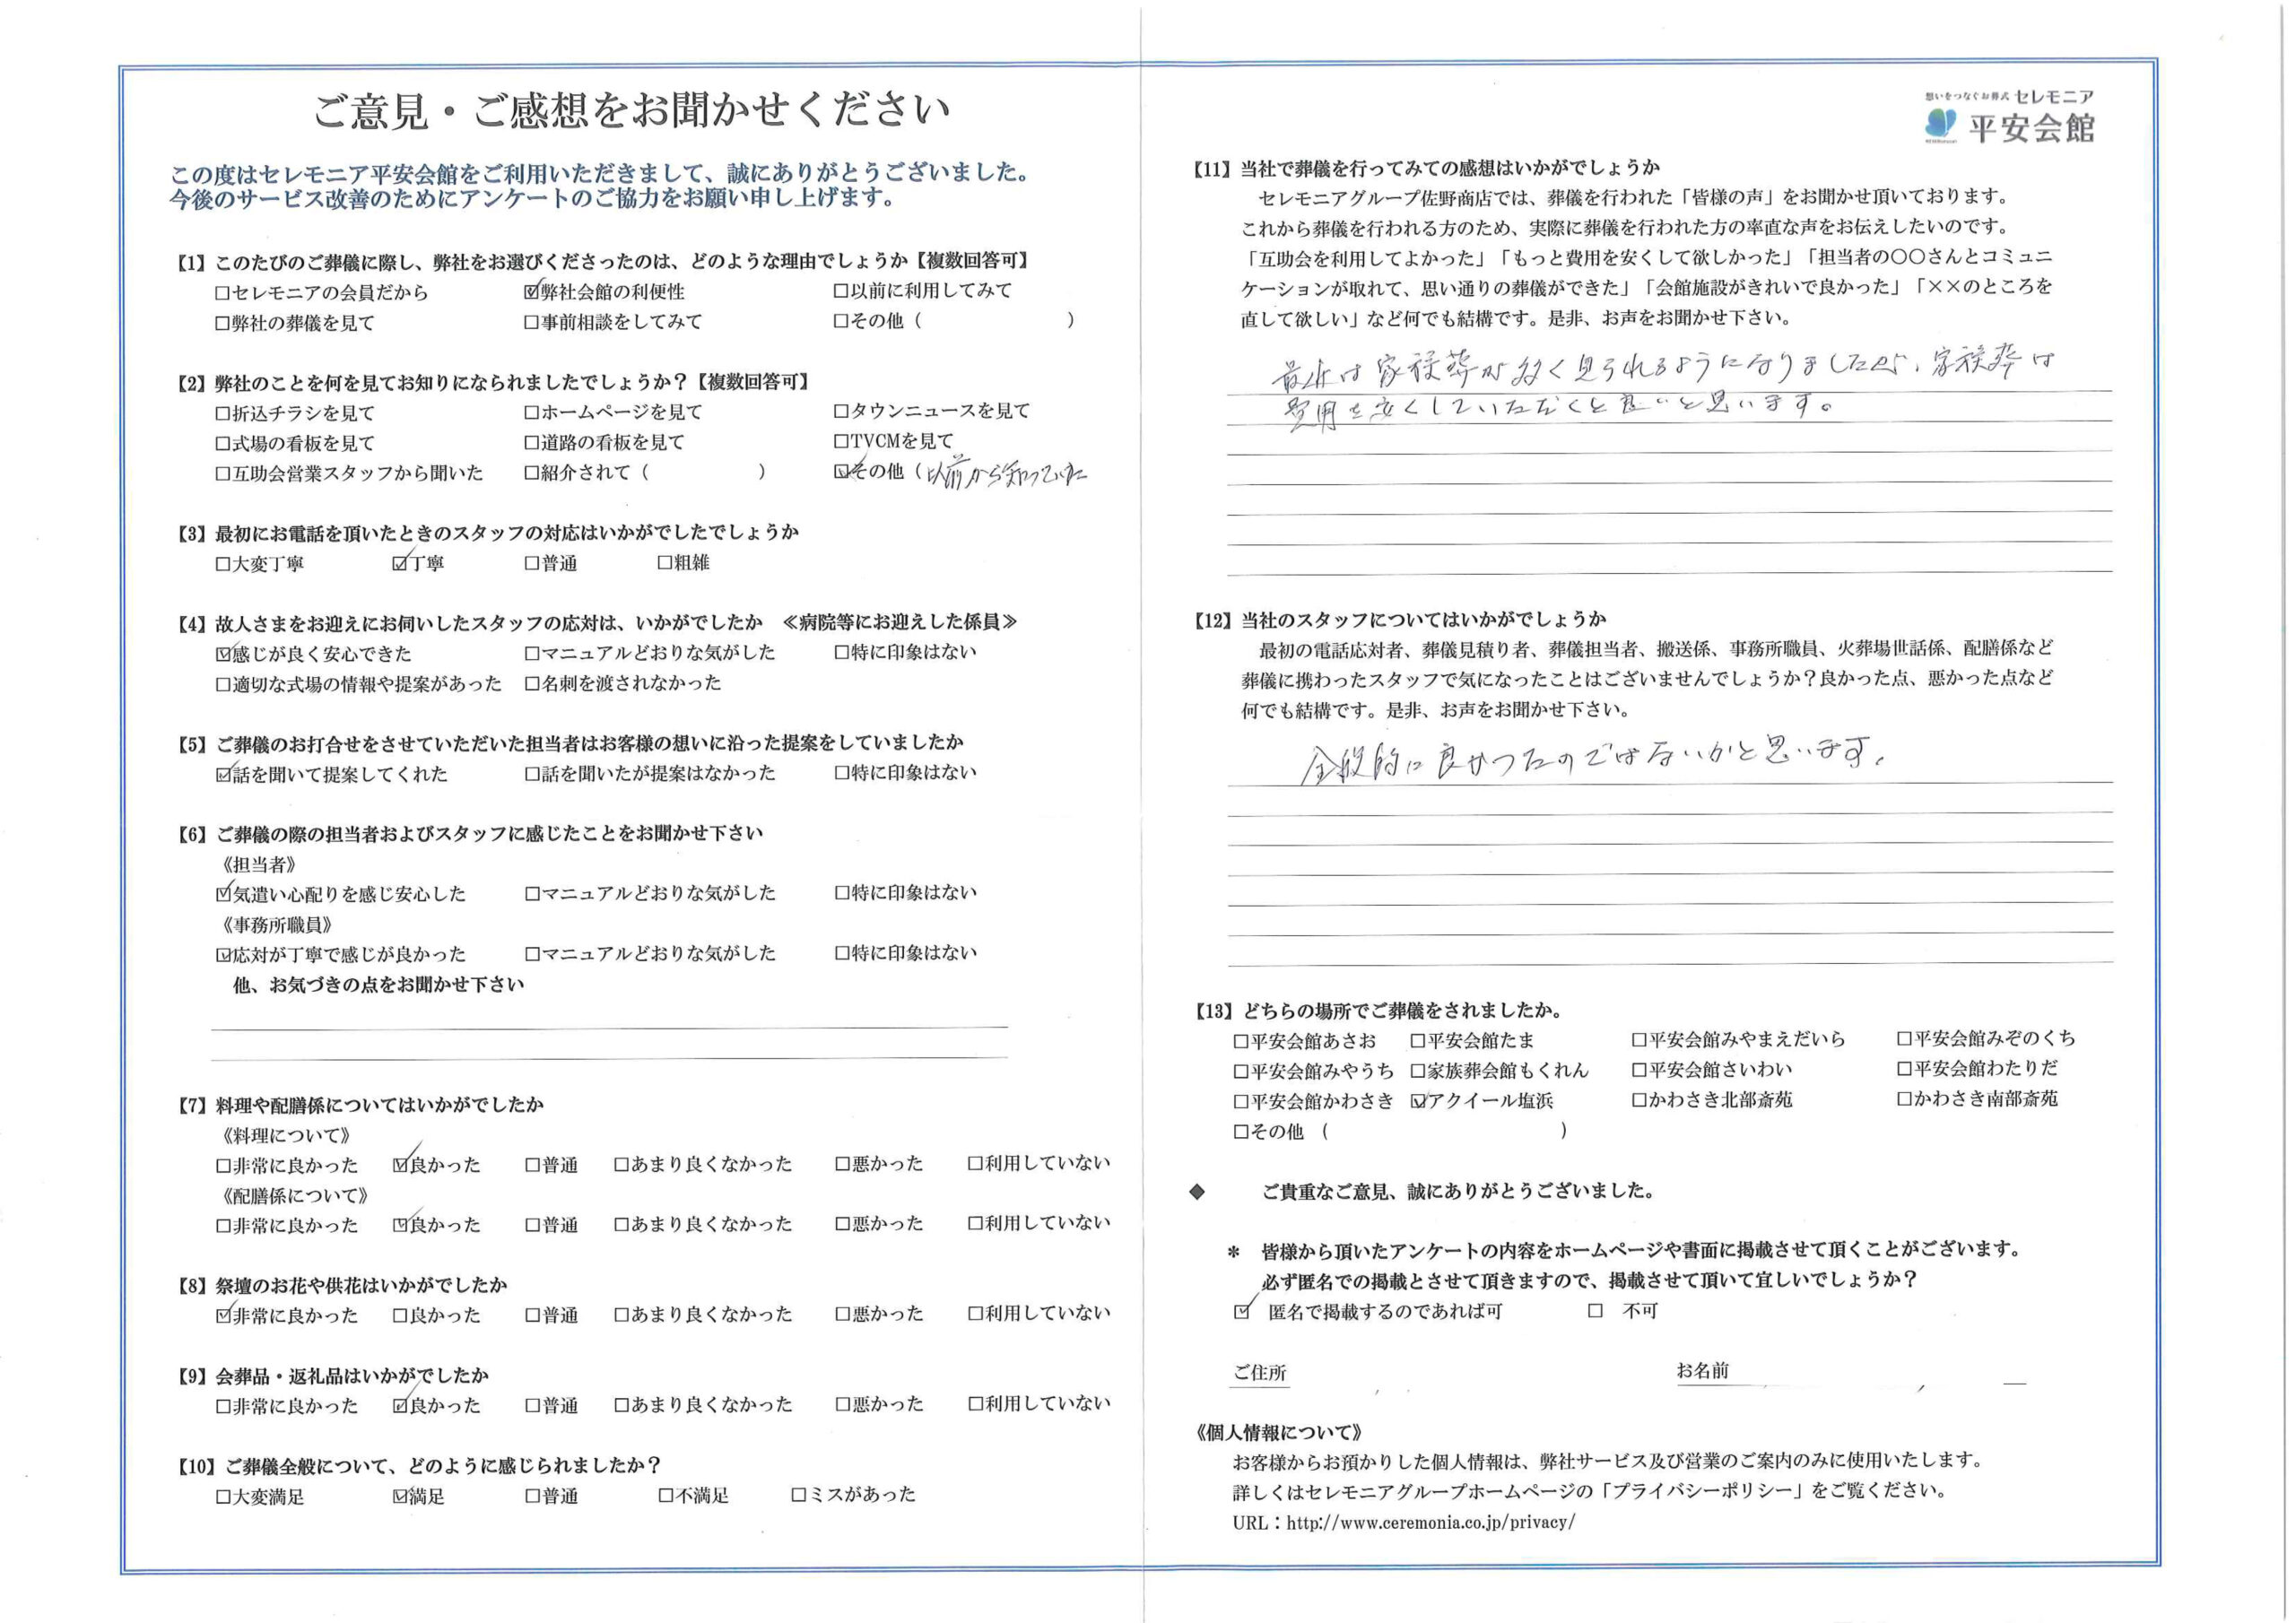 ご意見・ご感想をお聞かせください
この度はセレモニア平安会館をご利用いただきまして、誠にありがとうございました。
今後のサービス改善のためにアンケートのご協力をお願い申し上げます。
【1】このたびのご葬儀に際し、弊社をお選びくださったのは、どのような理由でしょうか【複数回答可】
□セレモニアの会員だから ☑弊社会館の利便性 □以前に利用してみて
□弊社の葬儀を見て □事前相談をしてみて □その他（ ）
【2】弊社のことを何を見てお知りになられましたでしょうか？【複数回答可】
□折込チラシを見て □ホームページを見て □タウンニュースを見て
□式場の看板を見て □道路の看板を見て □TVCMを見て
□互助会営業スタッフから聞いた □紹介されて（ ） ☑その他（以前から知っていた
【3】最初にお電話を頂いたときのスタッフの対応はいかがでしたでしょうか
□大変丁寧 ☑丁寧 □普通 □粗雑
【4】故人さまをお迎えにお伺いしたスタッフの応対は、いかがでしたか ≪病院等にお迎えした係員≫
☑感じが良く安心できた □マニュアルどおりな気がした □特に印象はない
□適切な式場の情報や提案があった □名刺を渡されなかった
【5】ご葬儀のお打合せをさせていただいた担当者はお客様の想いに沿った提案をしていましたか
☑話を聞いて提案してくれた □話を聞いたが提案はなかった □特に印象はない
【6】ご葬儀の際の担当者およびスタッフに感じたことをお聞かせ下さい
《担当者》
☑気遣い心配りを感じ安心した □マニュアルどおりな気がした □特に印象はない
《事務所職員》
☑応対が丁寧で感じが良かった □マニュアルどおりな気がした □特に印象はない
他、お気づきの点をお聞かせ下さい
【7】料理や配膳係についてはいかがでしたか
《料理について》
□非常に良かった ☑良かった □普通 □あまり良くなかった □悪かった □利用していない
《配膳係について》
□非常に良かった ☑良かった □普通 □あまり良くなかった □悪かった □利用していない
【8】祭壇のお花や供花はいかがでしたか
☑非常に良かった □良かった □普通 □あまり良くなかった □悪かった □利用していない
【9】会葬品・返礼品はいかがでしたか
□非常に良かった ☑良かった □普通 □あまり良くなかった □悪かった □利用していない
【10】ご葬儀全般について、どのように感じられましたか？
□大変満足 ☑満足 □普通 □不満足 □ミスがあった
想いをつなぐお葬式 セレモニア
平安会館
【11】当社で葬儀を行ってみての感想はいかがでしょうか
セレモニアグループ佐野商店では、葬儀を行われた「皆様の声」をお聞かせ頂いております。
これから葬儀を行われる方のため、実際に葬儀を行われた方の率直な声をお伝えしたいのです。
「互助会を利用してよかった」「もっと費用を安くして欲しかった」「担当者の〇〇さんとコミュニ
ケーションが取れて、思い通りの葬儀ができた」「会館施設がきれいで良かった」「××のところを
直して欲しい」など何でも結構です。是非、お声をお聞かせ下さい。
最近は家族葬が多く見られるようになりましたが、家族葬は
費用を安くしていただくと良いと思います。
【12】当社のスタッフについてはいかがでしょうか
最初の電話応対者、葬儀見積り者、葬儀担当者、搬送係、事務所職員、火葬場世話係、配膳係など
葬儀に携わったスタッフで気になったことはございませんでしょうか？良かった点、悪かった点など
何でも結構です。是非、お声をお聞かせ下さい。
全般的に良かったのではないかと思います。
【13】どちらの場所でご葬儀をされましたか。
□平安会館あさお □平安会館たま □平安会館みやまえだいら □平安会館みぞのくち
□平安会館みやうち □家族葬会館もくれん □平安会館さいわい □平安会館わたりだ
□平安会館かわさき ☑アクイール塩浜 □かわさき北部斎苑 □かわさき南部斎苑
□その他（ ）
◆ ご貴重なご意見、誠にありがとうございました。
＊ 皆様から頂いたアンケートの内容をホームページや書面に掲載させて頂くことがございます。
必ず匿名での掲載とさせて頂きますので、掲載させて頂いて宜しいでしょうか？
☑ 匿名で掲載するのであれば可 □ 不可
ご住所 お名前
《個人情報について》
お客様からお預かりした個人情報は、弊社サービス及び営業のご案内のみに使用いたします。
詳しくはセレモニアグループホームページの「プライバシーポリシー」をご覧ください。
URL：http://www.ceremonia.co.jp/privacy/